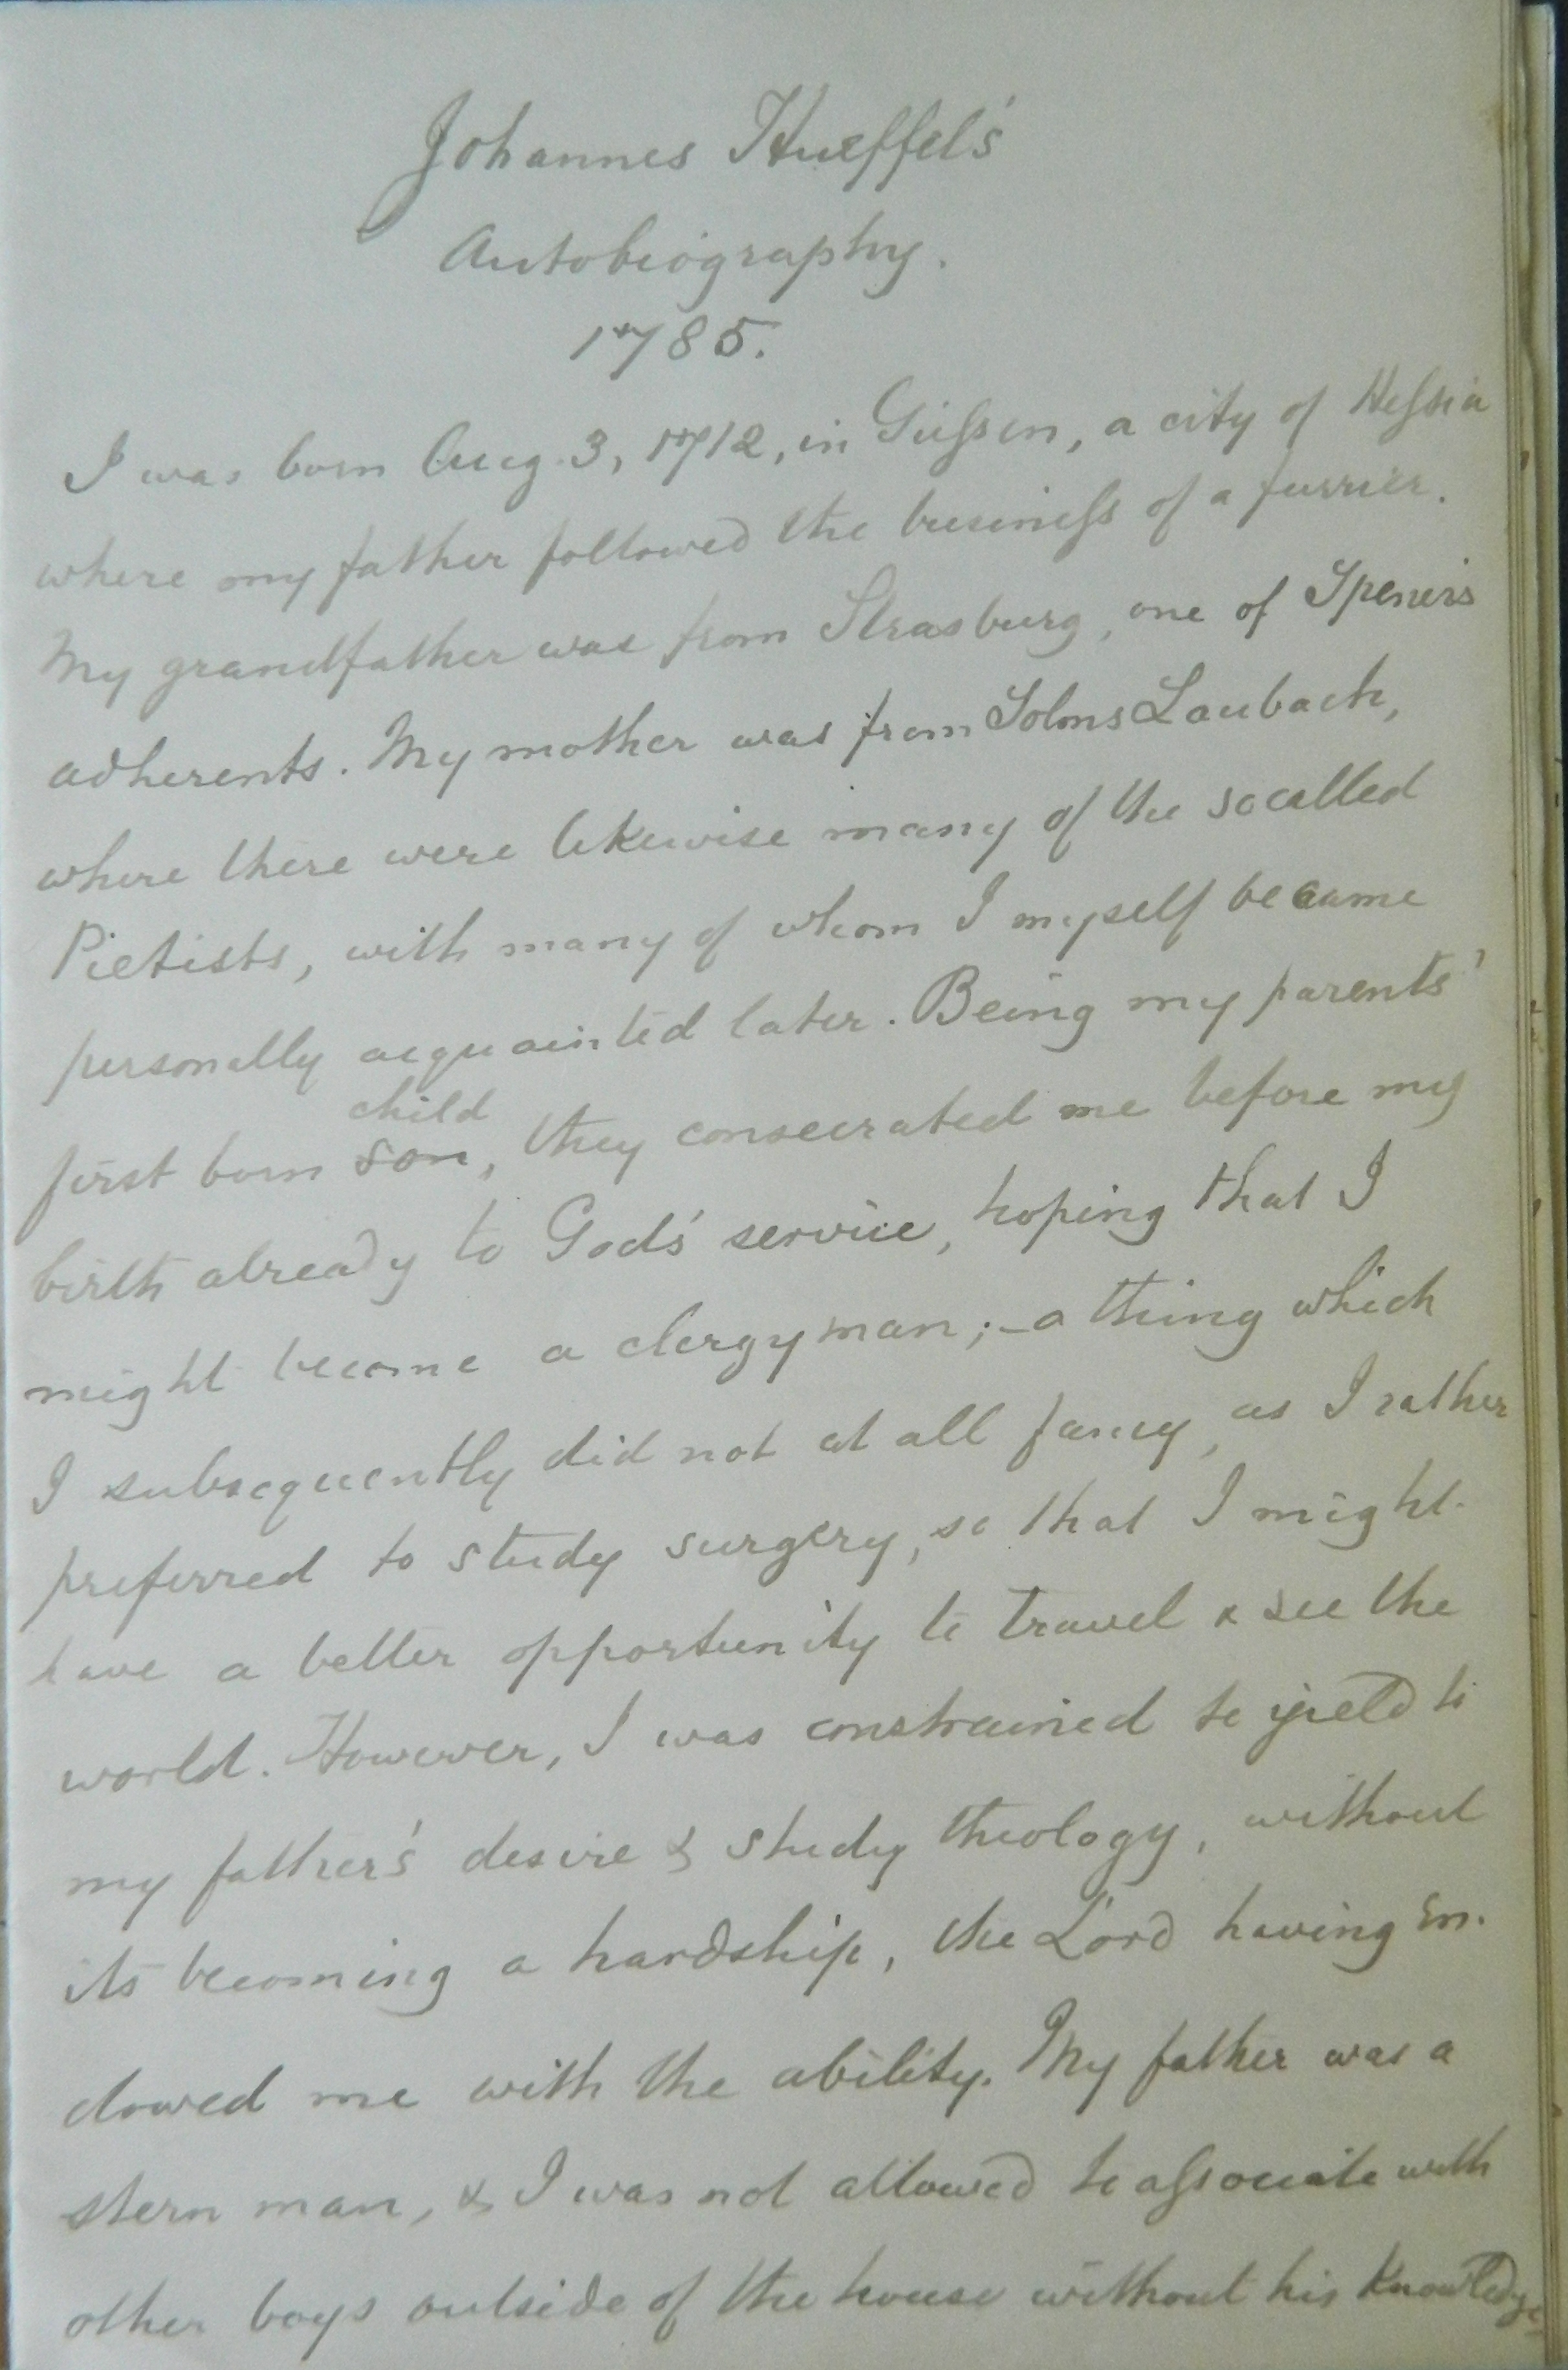 Johannes Hueffel's
Autobiography.
1785.
I was born Aug. 3, 1712, in Giessen, a city of Hessia
where my father followed the business of a furrier.
My grandfather was from Strasburg, one of Spener's
adherents. My mother was from Solms Laubach,
where there were likewise many of the socalled
Pietists, with many of whom I myself became
personally acquainted later. Being my parents'
child
first born son, they consecrated me before my
birth already to God's service, hoping that I
might become a clergyman; - a thing which
I subsequently did not at all fancy, as I rather
preferred to study surgery, so that I might
have a better opportunity to travel & see the
world. However, I was constrained to yield to
my father's desire & study theology, without
its becoming a hardship, the Lord having en-
dowed me with the ability. My father was a
stern man, & I was not allowed to associate with
other boys outside of the house without his knowledge